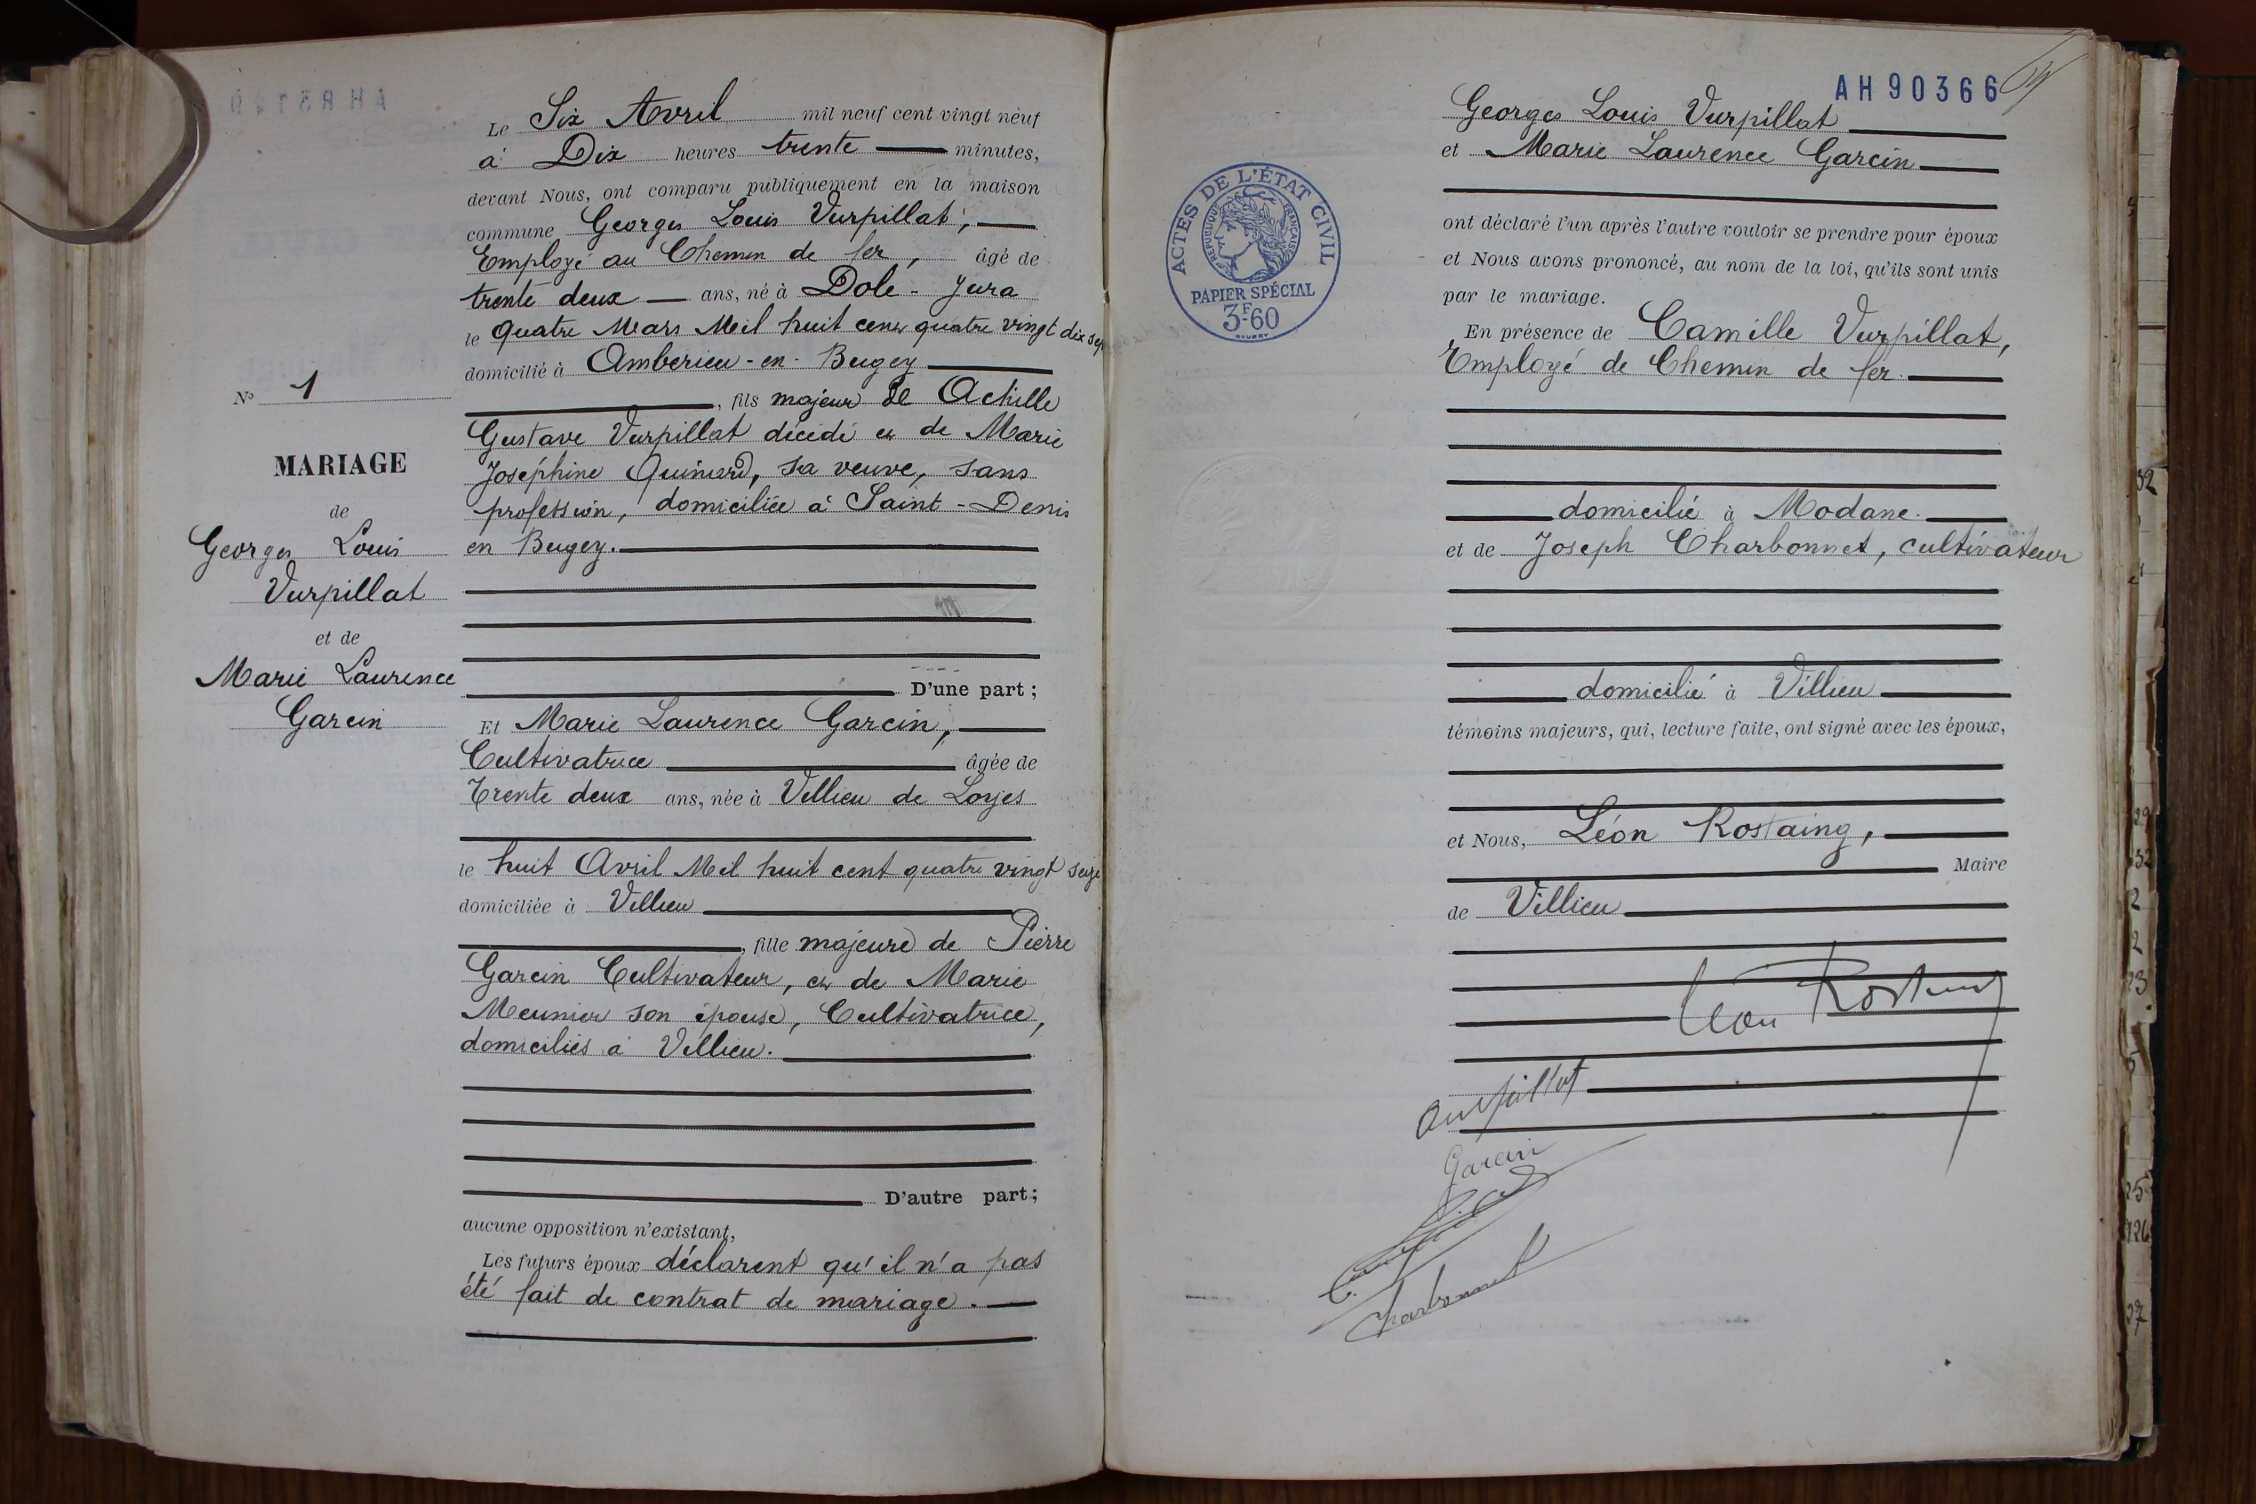 Le Six Avril mil neuf cent vingt neuf
à Dix heures trente minutes,
devant Nous, ont comparu publiquement en la maison
commune Georges Louis Vurpillat,
Employé au Chemin de fer, âgé de
trente deux ans, né à Dole - Jura
le quatre Mars Mil huit cent quatre vingt dix sep
domicilié à Amberieu-en-Bugey
, fils majeur de Achille
Gustave Vurpillat décédé et de Marie
Joséphine Quinard, sa veuve, sans
profession, domiciliée à Saint-Denis
en Bugey.
D'une part ;
N° 1
MARIAGE
de
Georges Louis
Vurpillat
et de
Marie Laurence
Garcin
Et Marie Laurence Garcin,
Cultivatrice âgée de
Trente deux ans, née à Villieu de Loyes
le huit Avril Mil huit cent quatre vingt seize
domiciliée à Villieu
, fille majeure de Pierre
Garcin Cultivateur, et de Marie
Meunier son épouse, Cultivatrice,
domiciliés à Villieu.
D'autre part ;
aucune opposition n'existant,
Les futurs époux déclarent qu'il n'a pas
été fait de contrat de mariage.
AH90366
ACTES DE L'ÉTAT CIVIL
RÉPUBLIQUE FRANÇAISE
PAPIER SPÉCIAL
3F60
Georges Louis Vurpillat
et Marie Laurence Garcin
ont déclaré l'un après l'autre vouloir se prendre pour époux
et Nous avons prononcé, au nom de la loi, qu'ils sont unis
par le mariage.
En présence de Camille Vurpillat,
Employé de Chemin de fer.
domicilié à Modane.
et de Joseph Charbonnet, cultivateur
domicilié à Villieu
témoins majeurs, qui, lecture faite, ont signé avec les époux,
et Nous, Léon Rostaing,
Maire
de Villieu
Léon Rostaing
Vurpillat
Garcin
Charbonnet